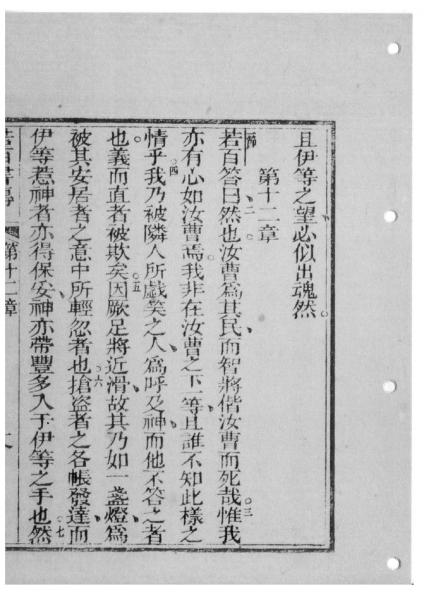 且伊等之望必似出魂然。
第十二章
節一若百答曰、二然也汝曹爲其民、而智將偕汝曹而死哉。三惟我
亦有心如汝曹焉。我非在汝曹之下一等、且誰不知此樣之
情乎。四我乃被隣人所戲笑之人、爲呼及神、而他不答之者
也。義而直者被欺矣。五因厥足將近滑、故其乃如一盞燈、爲
被其安居者之意中所輕忽者也。六搶盜者之各帳發達、而
伊等惹神者亦得保安、神亦帶豐多入于伊等之手也。七然
若百書傳 第十二章